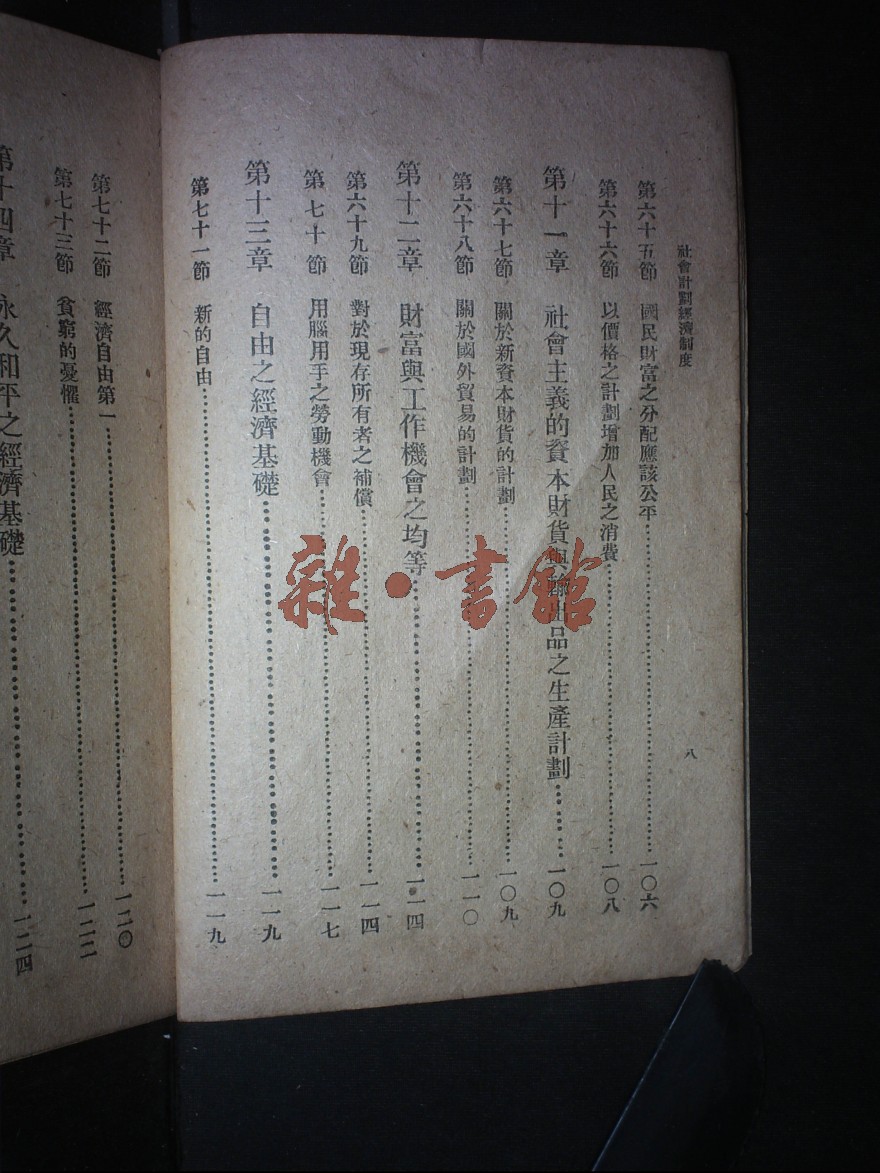 社會計劃經濟制度
八
第六十五節 國民財富之分配應該公平……一〇六
第六十六節 以價格之計劃增加人民之消費……一〇八
第十一章 社會主義的資本財貨與輸出品之生產計劃……一〇九
第六十七節 關於新資本財貨的計劃……一〇九
第六十八節 關於國外貿易的計劃……一一〇
第十二章 財富與工作機會之均等……一一四
第六十九節 對於現存所有者之補償……一一四
第七十節 用腦用手之勞動機會……一一七
第十三章 自由之經濟基礎……一一九
第七十一節 新的自由……一一九
第七十二節 經濟自由第一……一二〇
第七十三節 貧窮的憂懼……一二二
第十四章 永久和平之經濟基礎……一二四
雜·書館